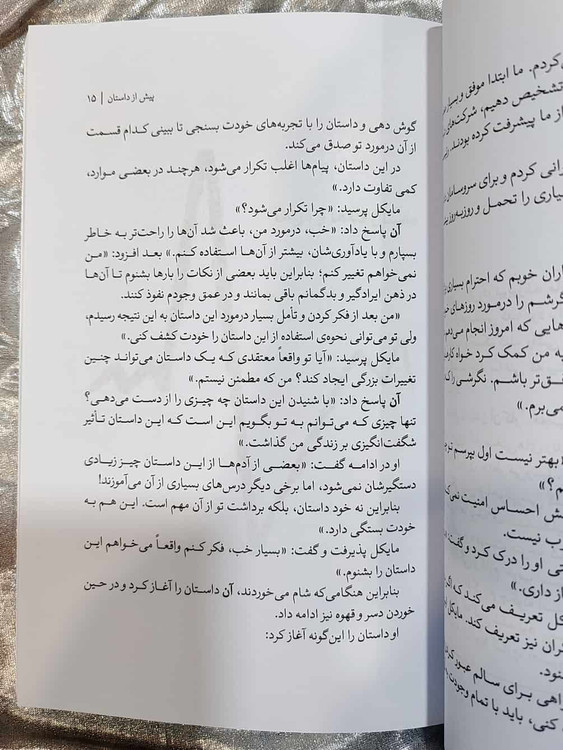 پیش از داستان | ۱۵
گوش دهی و داستان را با تجربه‌های خودت بسنجی تا ببینی کدام قسمت
از آن درمورد تو صدق می‌کند.
در این داستان، پیام‌ها اغلب تکرار می‌شود، هرچند در بعضی موارد،
کمی تفاوت دارد.»
مایکل پرسید: «چرا تکرار می‌شود؟»
آن پاسخ داد: «خب، درمورد من، باعث شد آن‌ها را راحت‌تر به خاطر
بسپارم و با یادآوری‌شان، بیشتر از آن‌ها استفاده کنم.» بعد افزود: «من
نمی‌خواهم تغییر کنم؛ بنابراین باید بعضی از نکات را بارها بشنوم تا آن‌ها
در ذهن ایرادگیر و بدگمانم باقی بمانند و در عمق وجودم نفوذ کنند.
«من بعد از فکر کردن و تأمل بسیار درمورد این داستان به این نتیجه رسیدم،
ولی تو می‌توانی نحوه‌ی استفاده از این داستان را خودت کشف کنی.»
مایکل پرسید: «آیا تو واقعاً معتقدی که یک داستان می‌تواند چنین
تغییرات بزرگی ایجاد کند؟ من که مطمئن نیستم.»
آن پاسخ داد: «با شنیدن این داستان چه چیزی را از دست می‌دهی؟
تنها چیزی که می‌توانم به تو بگویم این است که این داستان تأثیر
شگفت‌انگیزی بر زندگی من گذاشت.»
او در ادامه گفت: «بعضی از آدم‌ها از این داستان چیز زیادی
دستگیرشان نمی‌شود، اما برخی دیگر درس‌های بسیاری از آن می‌آموزند!
بنابراین نه خود داستان، بلکه برداشت تو از آن مهم است. این هم به
خودت بستگی دارد.»
مایکل پذیرفت و گفت: «بسیار خب، فکر کنم واقعاً می‌خواهم این
داستان را بشنوم.»
بنابراین هنگامی‌که شام می‌خوردند، آن داستان را آغاز کرد و در حین
خوردن دسر و قهوه نیز ادامه داد.
او داستان را این‌گونه آغاز کرد:
کردم. ما ابتدا موفق و بسیار
تشخیص دهیم، شرکت‌های
از ما پیشرفت کرده بودند.
رانی کردم و برای سروسامان
یاری را تحمل و روزبه‌روز
اران خوبم که احترام بسیاری
گرشم را درمورد روزهای
هایی که امروز انجام می‌دهم
به من کمک کرد خواه
فق‌تر باشم. نگرشی را
می‌برم.»
«بهتر نیست اول بپرسم
م؟»
ش احساس امنیت
رب نیست.
تی او را درک کرد و گفت:
از داری.»
کل تعریف می‌کند که
گران نیز تعریف کند. مایکل
نود.
راهی برای سالم عبور
کنی، باید با تمام وجودت